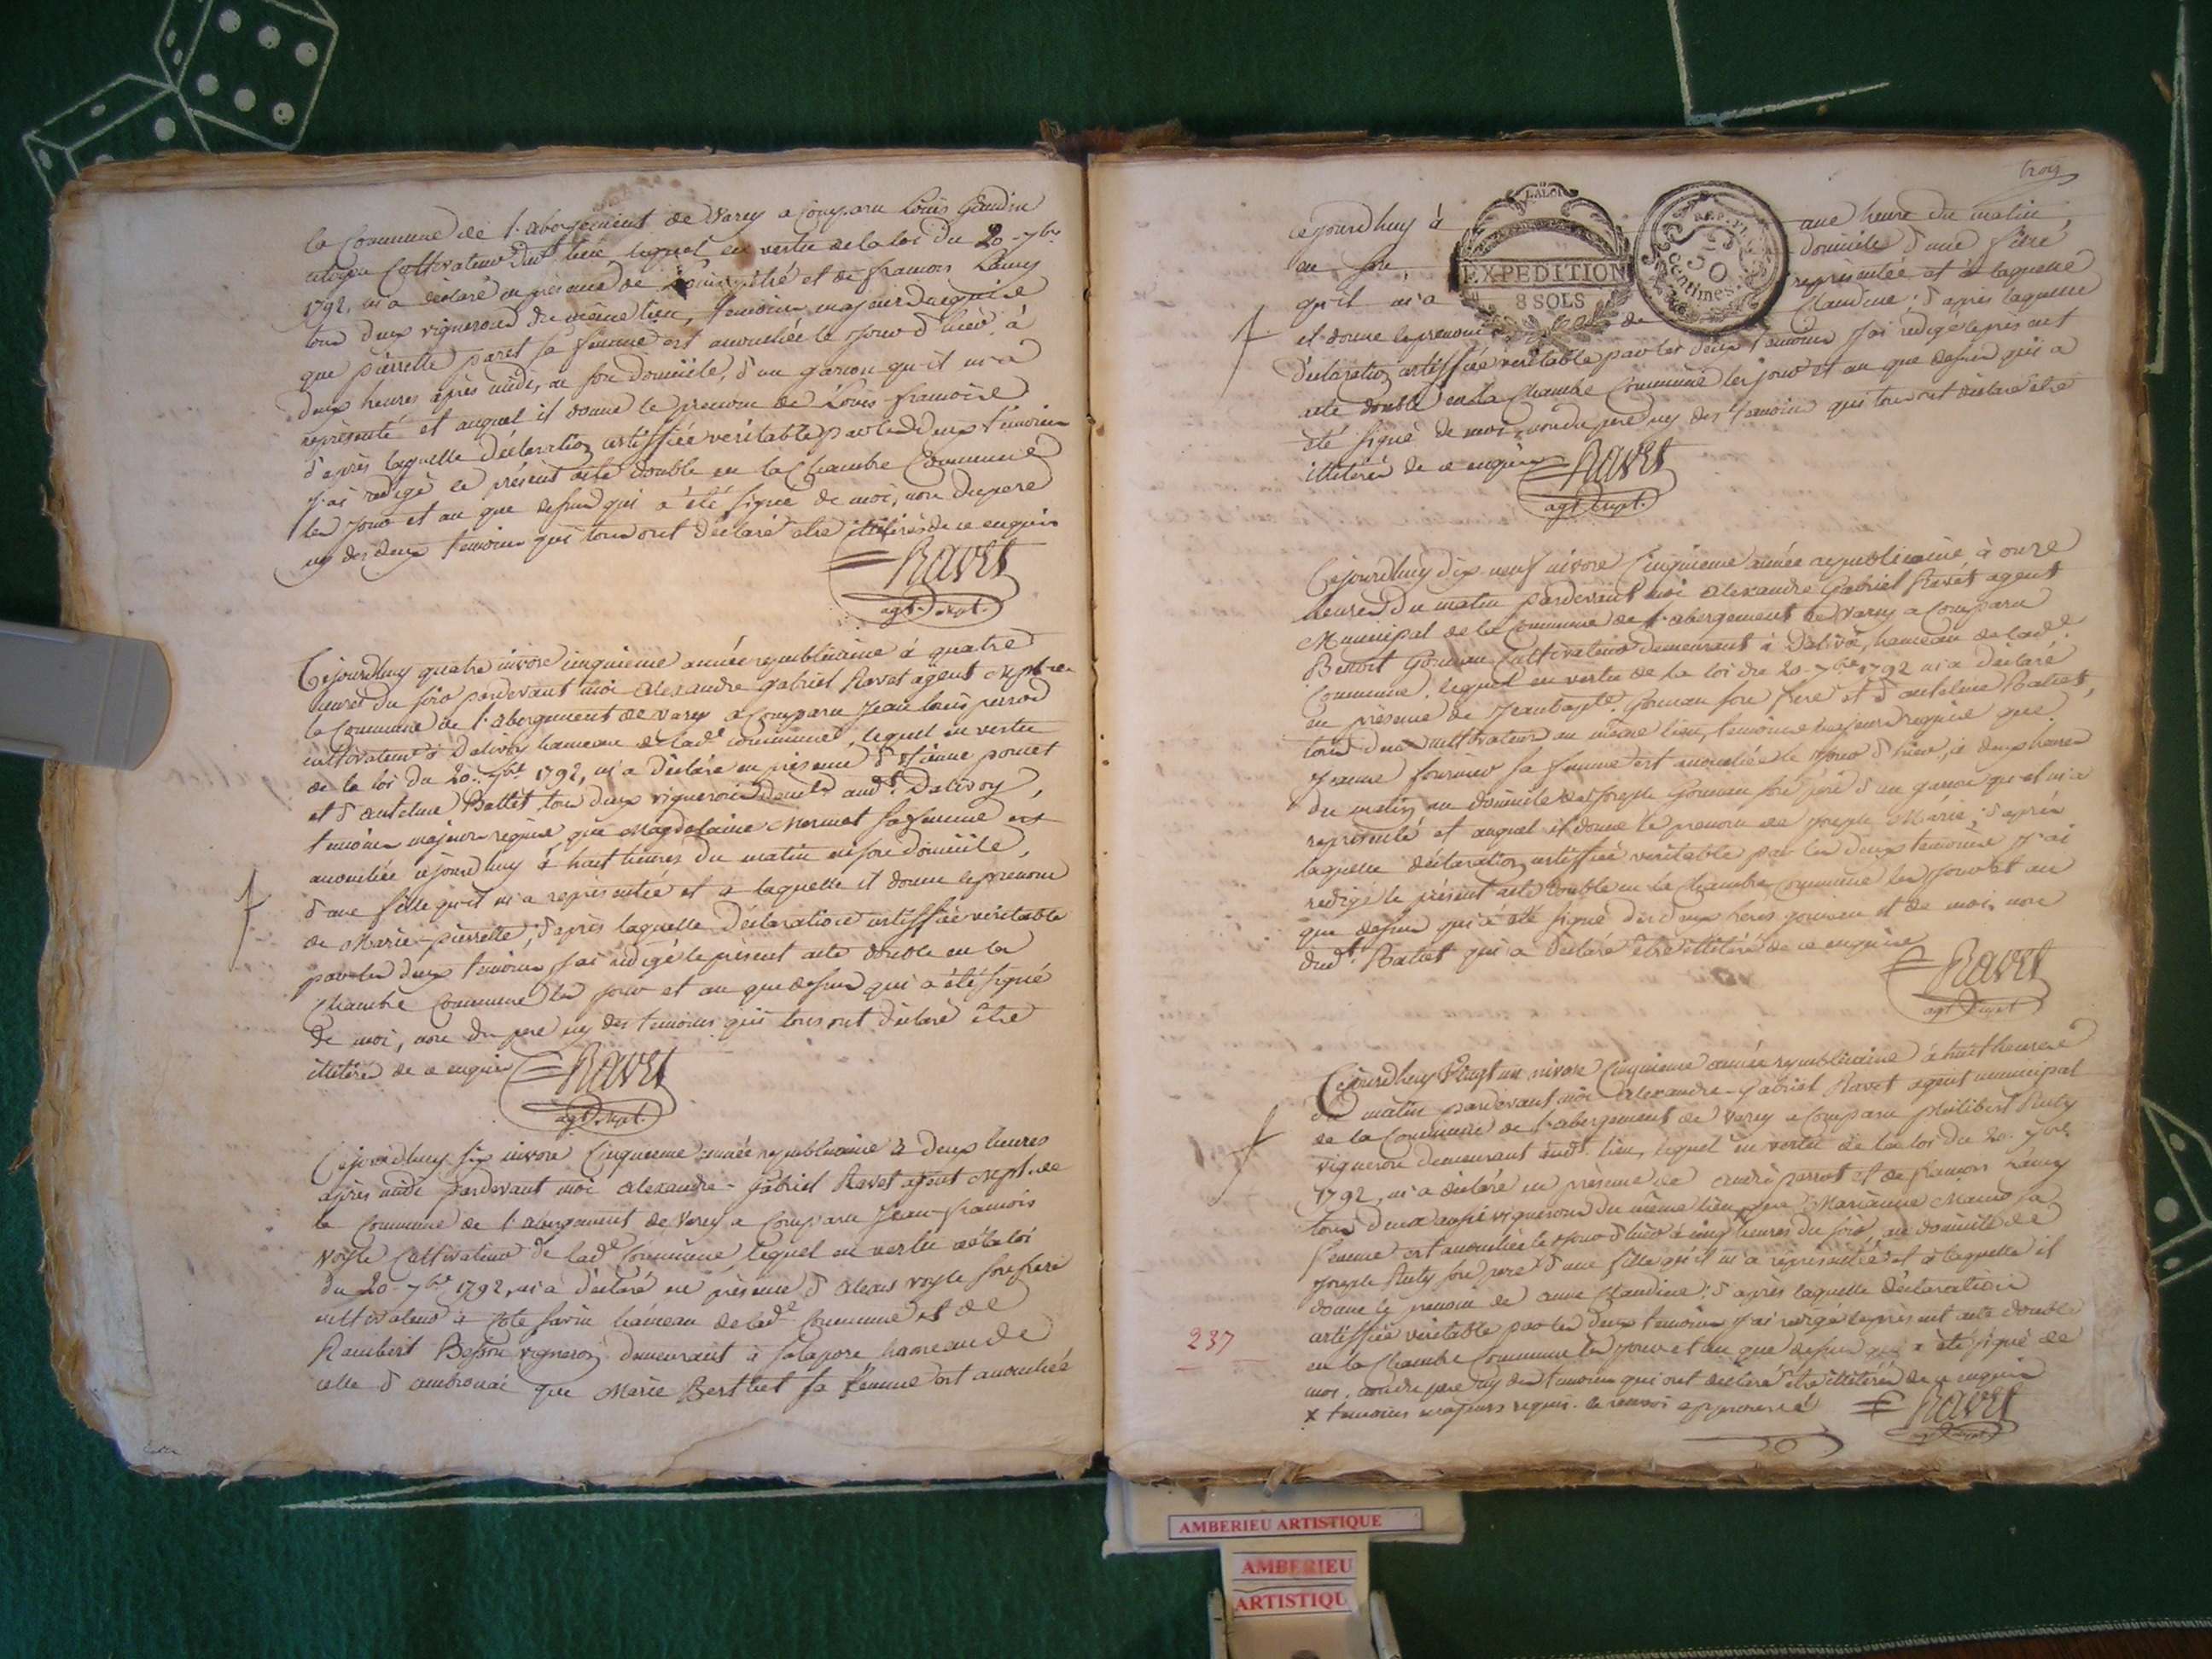 la Commune de l'abergement de varey a Comparu Louis Gaudin
citoyen Cultivateur dud.t lieu, lequel en vertu de la loi du 20. 7bre
1792, m'a déclaré en présence de Louis et de francois Lamy
tous deux vignerons du même lieu, temoins majeurs requis
que pierrette paret sa femme est accouchée le jour d'hier à
deux heures après midi, en son domicile, d'un garcon qu'il m'a
représenté et auquel il donne le prenom de Louis francois
d'après laquelle déclaration certiffiée veritable par les deux temoins
j'ai redigé le présent acte double en la Chambre Commune
les jour et an que dessus qui a été signé de moi, non du pere
ny des deux temoins qui tous ont déclaré etre illiterés de ce enquis
Ravet
agt. mpl.
Cejourdhuy quatre nivose cinquieme année republicaine à quatre
heures du soir pardevant moi alexandre gabriel Ravet agent mpl de
la Commune de l'abergement de varey a Comparu Jean louis perrod
cultivateur à Dalivoy hameau de lad.e commune, lequel en vertu
de la loi du 20. 7bre 1792, m'a déclaré en présence d'Etienne poncet
et d'antelme Battet tous deux vignerons demt. aud.t Dalivoy,
temoins majeurs requis que Magdelaine Mermet sa femme est
accouchée cejourdhuy à huit heures du matin en son domicile,
d'une fille qu'il m'a représentée et a laquelle il donne le prenom
de Marie-pierrette; d'après laquelle déclaration certiffiée véritable
par les deux temoins j'ai rédigé le présent acte double en la
Chambre Commune les jour et an que dessus qui a été signé
de moi, non du pere ny des temoins qui tous ont déclaré être
illiterés de ce enquis Ravet
agt. mpl.
Cejourdhuy six nivose Cinquieme année republicaine à deux heures
après midi pardevant moi alexandre-gabriel Ravet agent mpl. de
la Commune de l'abergement de varey a Comparu Jean-francois
voyle Cultivateur de lad.e Commune, lequel en vertu de la loi
du 20. 7bre 1792, m'a déclaré en présence d'alexis voyle son frere
cultivateur à Cote savin hameau de lad.e Commune et de
Rambert Besson vigneron demeurant à salapore hameau de
celle d'ambronai que Marie Berthet sa femme est accouchée
trois
cejourdhuy à une heure du matin,
en son domicile d'une fille
qu'il m'a représentée et à laquelle
EXPEDITION
8 SOLS
LA LOI
REP. FRA.
50
Centimes
et donne le prenom de Claudine; d'après laquelle
déclaration certiffiée véritable par les deux temoins j'ai redigé le présent
acte double en la Chambre Commune les jour et an que dessus qui a
été signé de moi, non du pere ny des temoins qui tous ont déclaré etre
illiterés de ce enquis Ravet
agt. mpl.
Cejourdhuy dix-neuf nivose Cinquieme année republicaine à onze
heures du matin pardevant moi alexandre Gabriel Ravet agent
Municipal de la Commune de l'abergement de varey a Comparu
Benoit Gonneau Cultivateur demeurant à Dalivoy, hameau de lad.e
Commune, lequel en vertu de la loi du 20. 7bre 1792 m'a déclaré
en présence de Jeanbapte. Gonneau son frere et d'antelme Battet,
tous deux cultivateurs au même lieu, temoins majeurs requis que
Jeanne fournier sa femme est accouchée le jour d'hier, à deux heures
du matin, au domicile de Joseph Gonneau son père d'un garcon qu'il m'a
représenté et auquel il donne le prenom de joseph Marie; d'après
laquelle déclaration certiffiée veritable par les deux temoins j'ai
redigé le présent acte double en la Chambre Commune les jour et an
que dessus qui a été signé des deux freres gonneau et de moi, non
dud.t Battet qui a déclaré être illiteré de ce enquis
Ravet
agt. mpl.
Cejourdhuy vingt un nivose Cinquieme année republicaine à huit heures
du matin pardevant moi alexandre-Gabriel Ravet agent municipal
de la Commune de l'abergement de varey a Comparu philibert Ruty
vigneron demeurant aud.t lieu, lequel en vertu de la loi du 20. 7bre
1792, m'a déclaré en présence de andré parrot et de francois Lamy
tous deux aussi vignerons du même lieu, x que Marianne sa
femme est accouchée le jour d'hier à cinq heures du soir, au domicile de
joseph Ruty son pere d'une fille qu'il m'a représentée et à laquelle il
donne le prenom de anne Claudine; d'après laquelle déclaration
certiffiée véritable par les deux temoins j'ai redigé le présent acte double
en la Chambre Commune les jour et an que dessus qui a été signé de
moi, non du pere ny des temoins qui ont déclaré etre illiterés de ce enquis
x temoins majeurs requis. le renvoi approuvé Ravet
agt. mpl.
237
AMBERIEU ARTISTIQUE
AMBERIEU
ARTISTIQU